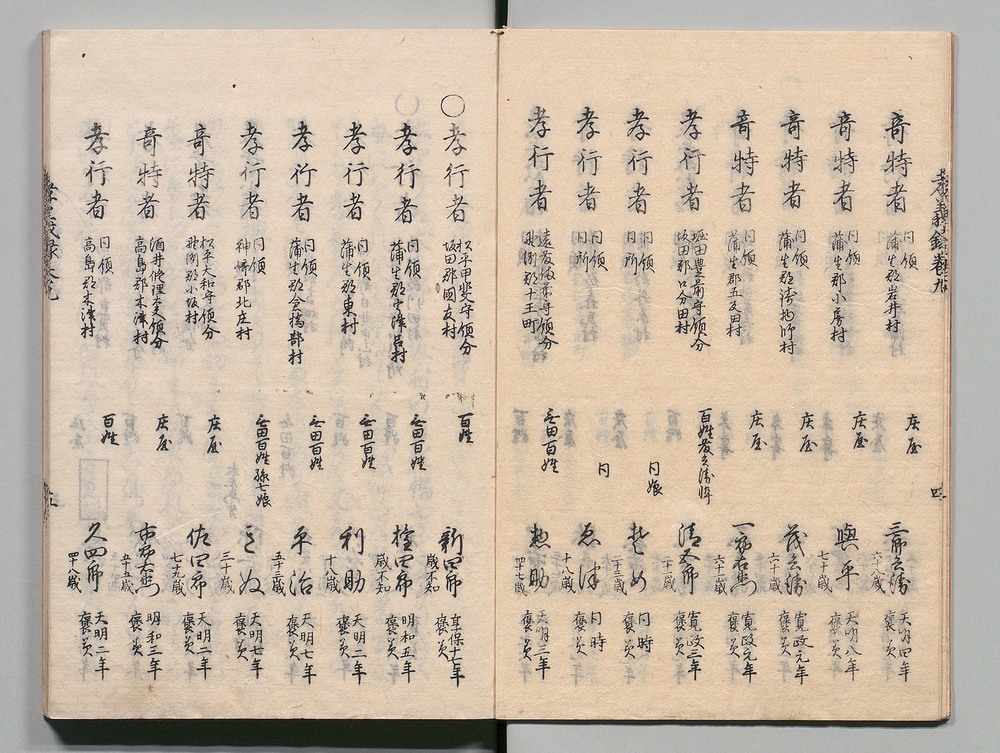 孝義録巻九
奇特者 同領 蒲生郡岩井村 庄屋 三郎兵衛 六十八歳 天明四年 褒美
奇特者 同領 蒲生郡小房村 庄屋 與平 七十歳 天明八年 褒美
奇特者 同領 蒲生郡 村 庄屋 茂兵衛 六十歳 寛政元年 褒美
奇特者 同領 蒲生郡五反田村 庄屋 右衛門 六十三歳 寛政元年 褒美
孝行者 堀田豊前守領分 坂田郡口分田村 百姓 兵衛悴 清五郎 寛政三年 褒美
孝行者 同領 同所 同娘 め 二十三歳 同時 褒美
孝行者 同領 同所 同 ゑ津 十八歳 同時 褒美
孝行者 遠藤備前守領分 野洲郡十王町 無田百姓 惣助 四十七歳 天明三年 褒美
○孝行者 松平甲斐守領分 坂田郡國友村 百姓 新四郎 歳不知 享保十七年 褒美
孝行者 同領 蒲生郡中津呂村 無田百姓 権四郎 歳不知 明和五年 褒美
孝行者 同領 蒲生郡東村 無田百姓 利助 十八歳 天明二年 褒美
孝行者 同領 蒲生郡今堀部村 無田百姓 平治 五十三歳 天明七年 褒美
孝行者 同領 神崎郡北庄村 無田百姓孫七娘 きぬ 三十歳 天明七年 褒美
奇特者 松平大和守領分 野洲郡小坂村 庄屋 佐四郎 七十九歳 天明二年 褒美
奇特者 酒井修理大夫領分 高島郡木津村 庄屋 市郎右衛門 五十五歳 明和三年 褒美
孝行者 同領 高島郡木津村 百姓 久四郎 四十八歳 天明二年 褒美
孝義録巻九